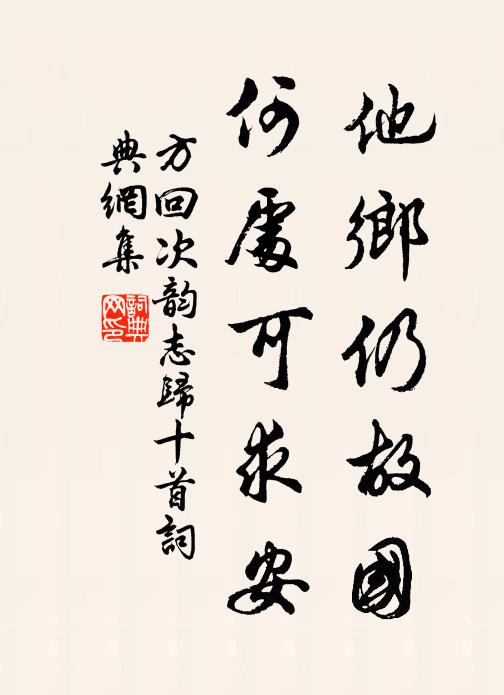 他鄉仍故國
何處可求安
方回次韵志歸十首詞
典網集
詞典
网印